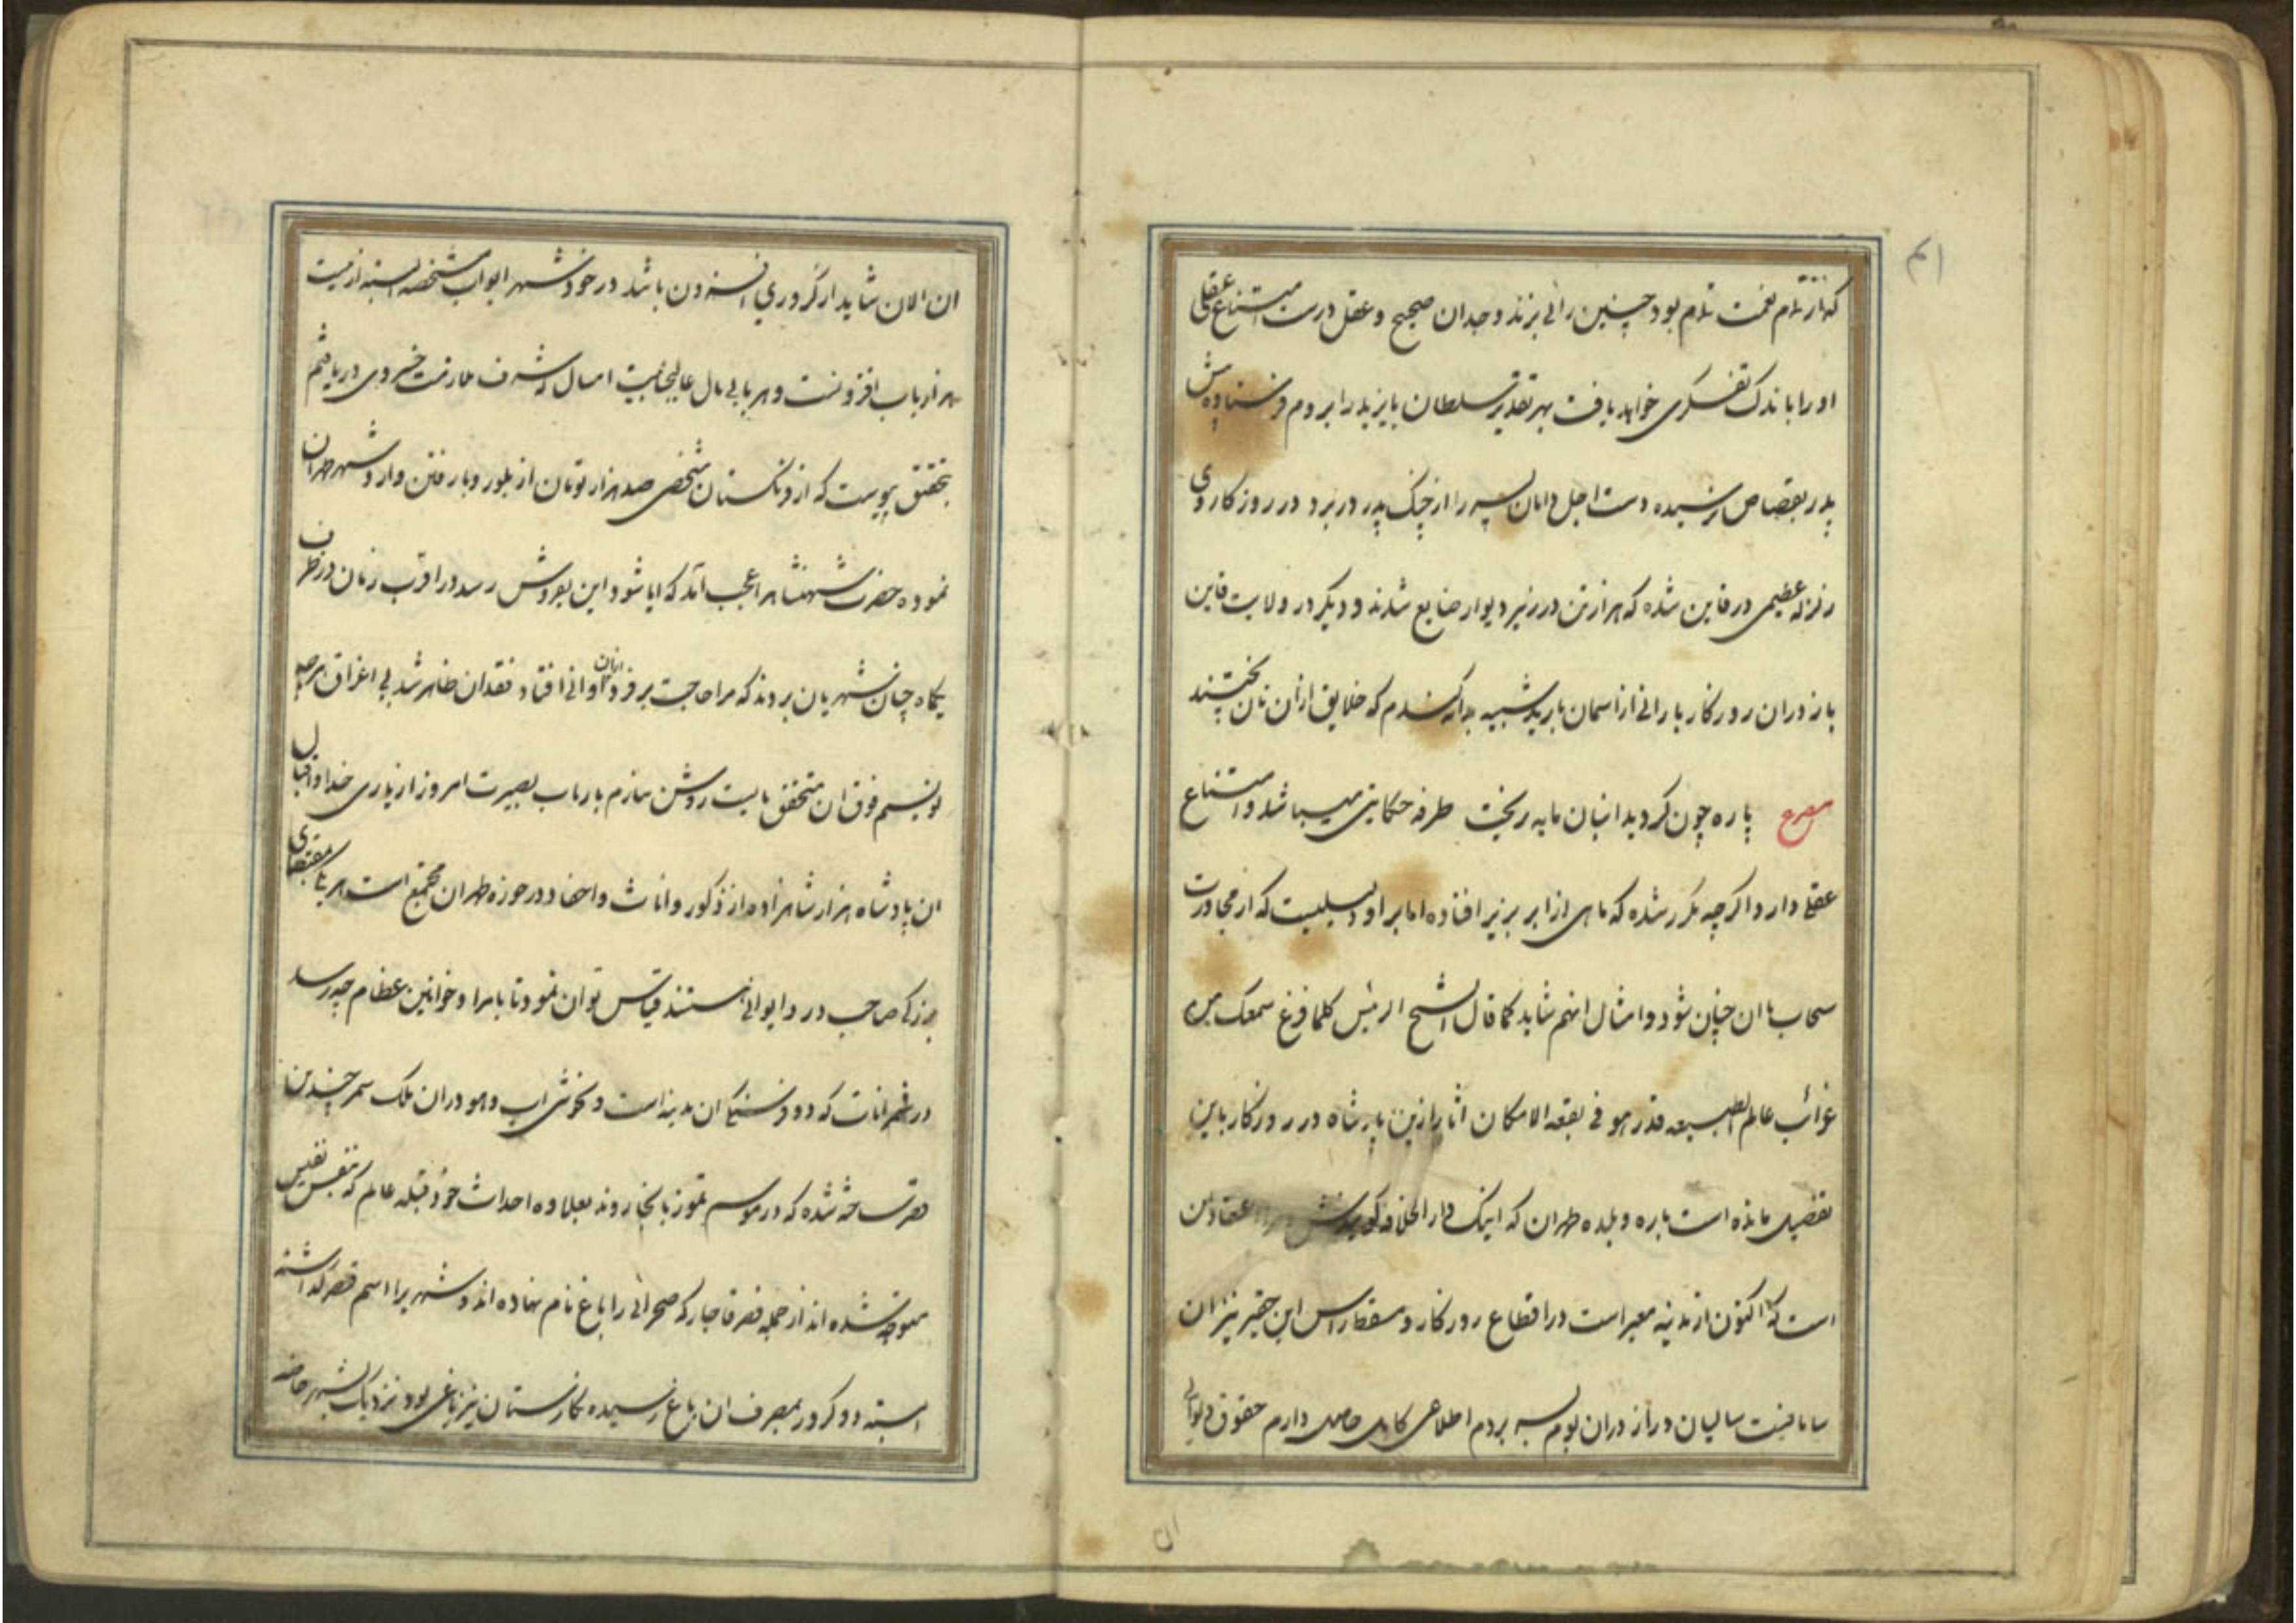 ۴۱
که از تمام نعمت تمام بود چنین رائی بزند وجدان صحیح و عقل درست امتناع عقلی
او را باندک تفکری خواهد یافت بهر تقدیر سلطان بایزید را بروم فرستاده پیش
پدر بقصاص نرسیده دست اجل دامان پسر را از چنک پدر در برد در روزکار وی
زلزله عظیمی در قاین شده که هزار تن در زیر دیوار ضایع شدند و دیکر در ولایت قاین
باز دران روزکار بارانی از اسمان بارید شبیه بدانه کندم که خلایق ازان نان پختند
مصرع پاره چون کردید انبان مایه ریخت طرفه حکایتی میباشد و امتناع
عقلی دارد اکرچه مکرر شده که ماهی از ابر بزیر افتاده اما بر او دلیلیست که از مجاورت
سحاب با ان چنان شود و امثال انهم شاید کما قال الشیخ الرئیس کلما قرغ سمعک من
غرائب عالم الطبیعه فذرهو فی بقعه الامکان اثار ازین پادشاه در روزکار باین
تفصیل مانده است باره و بلده طهران که اینک دار الخلافه
است که اکنون از مدینه معبر است در اقطاع روزکار و مسقط راس این حقیر نیز ان
سامانست سالیان دراز دران بوم بسر بردم اطلاعی کامل حاصل دارم حقوق دیوانی
ان
ان الان شاید از کروری افزون باشد در خود شهر ابواب مشخصه البته از بیست
هزار باب افزونست و هر بابی مال عالیجانبیت امسال که شرف ملازمت خسروی دریافتم
بتحقیق پیوست که از فرنکستان شخصی صد هزار تومان از بلور و بارفتن وارد شهر طهران
نموده حضرت شهنشاهرا عجب آمد که ایا شود این بفروش رسد در اقرب زمان در ظرف
یکماه چنان شهریان بردند که مرا حاجت بر فرد اوانی ازان افتاد فقدان ظاهر شد بی اغراق هرچه
نویسم فوق ان متحقق بایست روشن سازم بارباب بصیرت امروز از یاری خدا و اقبال
ان پادشاه هزار شاهزاده از ذکور و اناث و احفاد در حوزه طهران مجتمع است هر یک بمقتضای
بزرکی صاحب در و ایوانی هستند قیاس توان نمود تا بامرا و خوانین عظام چه رسد
در شمرانات که دو فرسنکی ان مدینه است و بخوشی اب و هوا دران ملک سمر چندین
قصر ساخته شده که در موسم تموز بانجا روند بعلاوه احداث خود قبله عالم که بنفس نفیس
متوجه شده اند از جمله قصر قاجار که صحرائی را باغ نام نهاده اند و شهریرا اسم قصر کذاشته
البته دو کرور بمصرف ان باغ رسیده نکارستان نیز باغی بود نزدیک بشهر